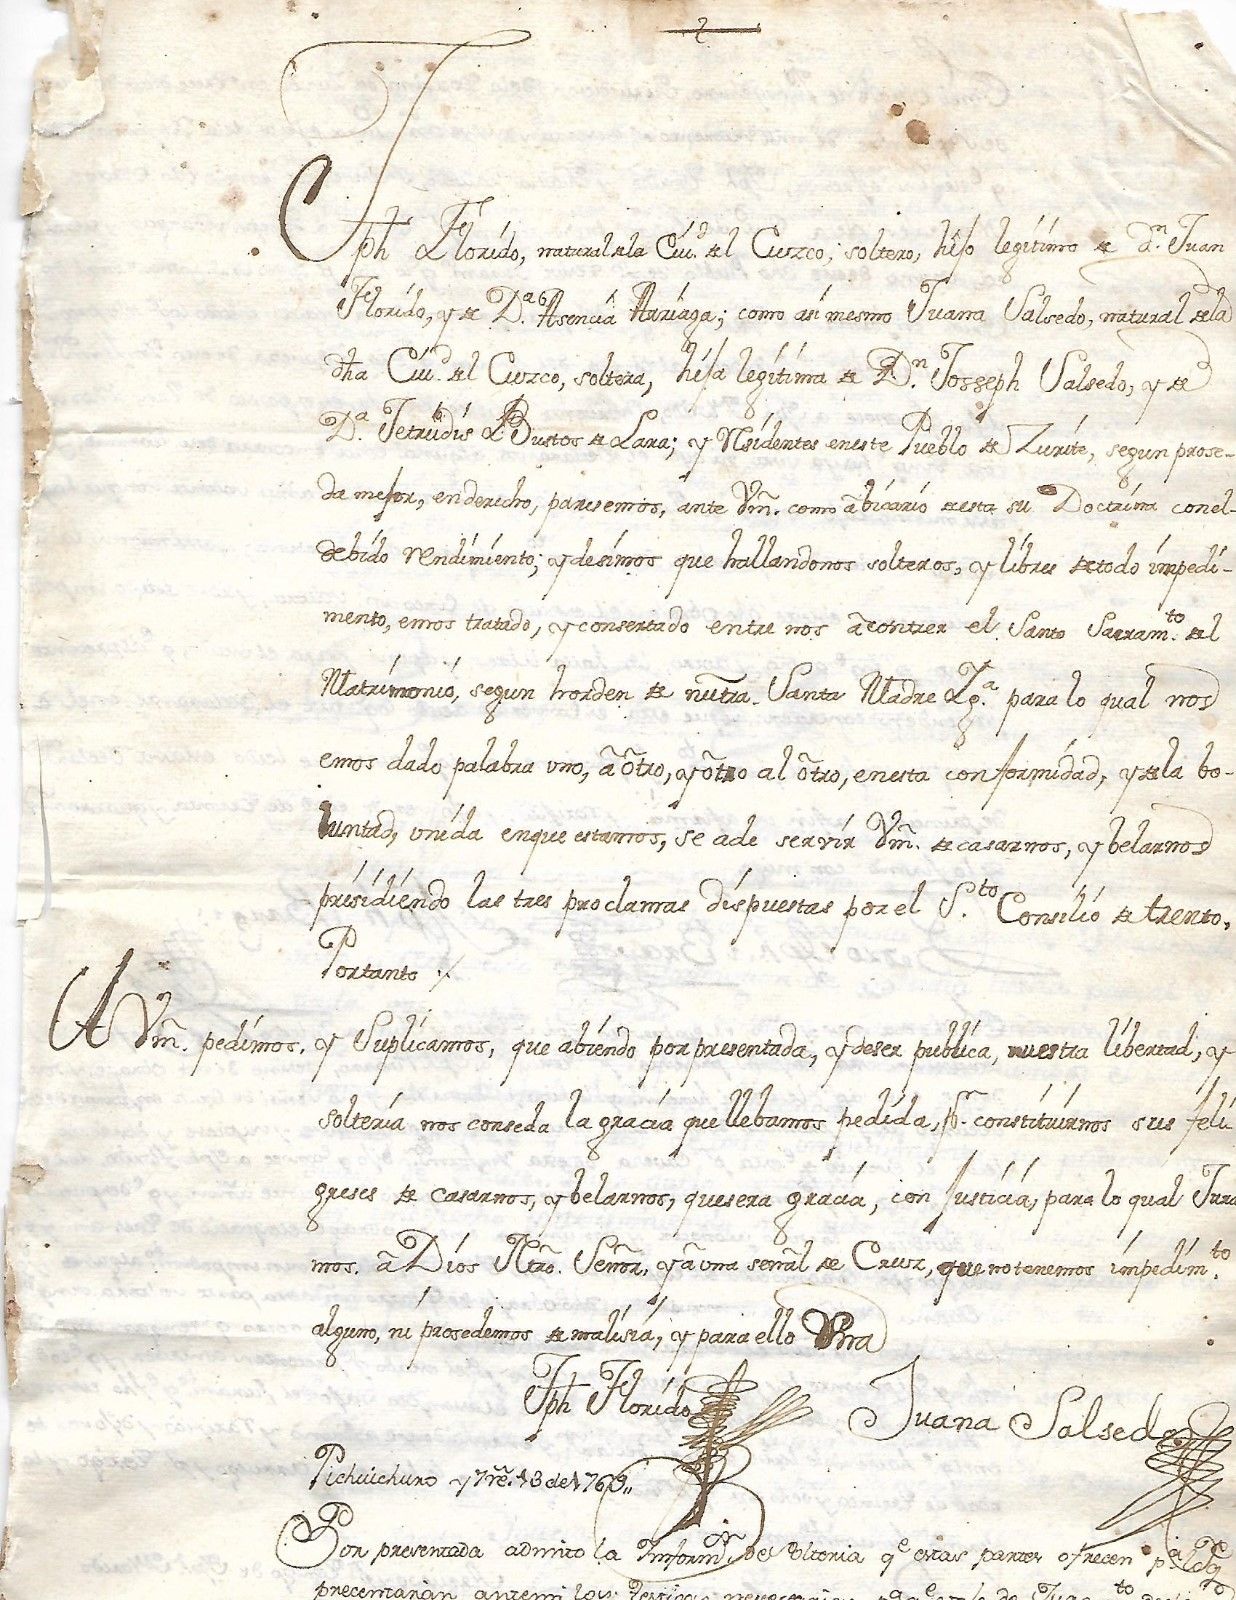 Jph Florido, natural de la Ciu.d del Cuzco; soltero, hijo legitimo de D.n Juan
Florido, y de D.a Asencia Arriaga; como asi mesmo Juana Salsedo, natural de la
dha Ciu.d del Cuzco, soltera, hija legitima de D.n Josseph Salsedo, y de
D.a Jetrudis Bustos de Lara; y Residentes en este Pueblo de Zurite, segun prose-
da mejor, en derecho, paresemos, ante Vm. como a bicario de esta su Doctrina con el
debido rendimiento; y desimos que hallandonos solteros, y libres de todo impedi-
mento, emos tratado, y consertado entre nos a contrer el Santo Sacram.to del
Matrimonio, segun horden de nutra. Santa Madre Ig.a para lo qual nos
emos dado palabra uno, a otro, y otro al otro, en esta conformidad, y de la bo-
luntad, unida en que estamos, se a de servir Vm. de casarnos, y belarnos
presidiendo las tres proclamas dispuestas por el S.to Consilio de trento.
Portanto
A Vm. pedimos, y Suplicamos, que abiendo por presentada, y de ser publica, nuestra libertad, y
solteria nos conseda la gracia que llebamos pedida, p.r constituirnos sus feli
greses de casarnos, y belarnos, que sera gracia, con Justicia, para lo qual Jura
mos. a Dios Ntro. Señor, y a una señal de Cruz, que no tenemos impedim.to
alguno, ni prosedemos de malisia, y para ello
Jph Florido Juana Salsedo
Pichuichuro y 7re. 13 de 1769
Por presentada admito la Inform.n de solteria q.e estas partes ofrecen
precentaran ante mi los testigos necesarios